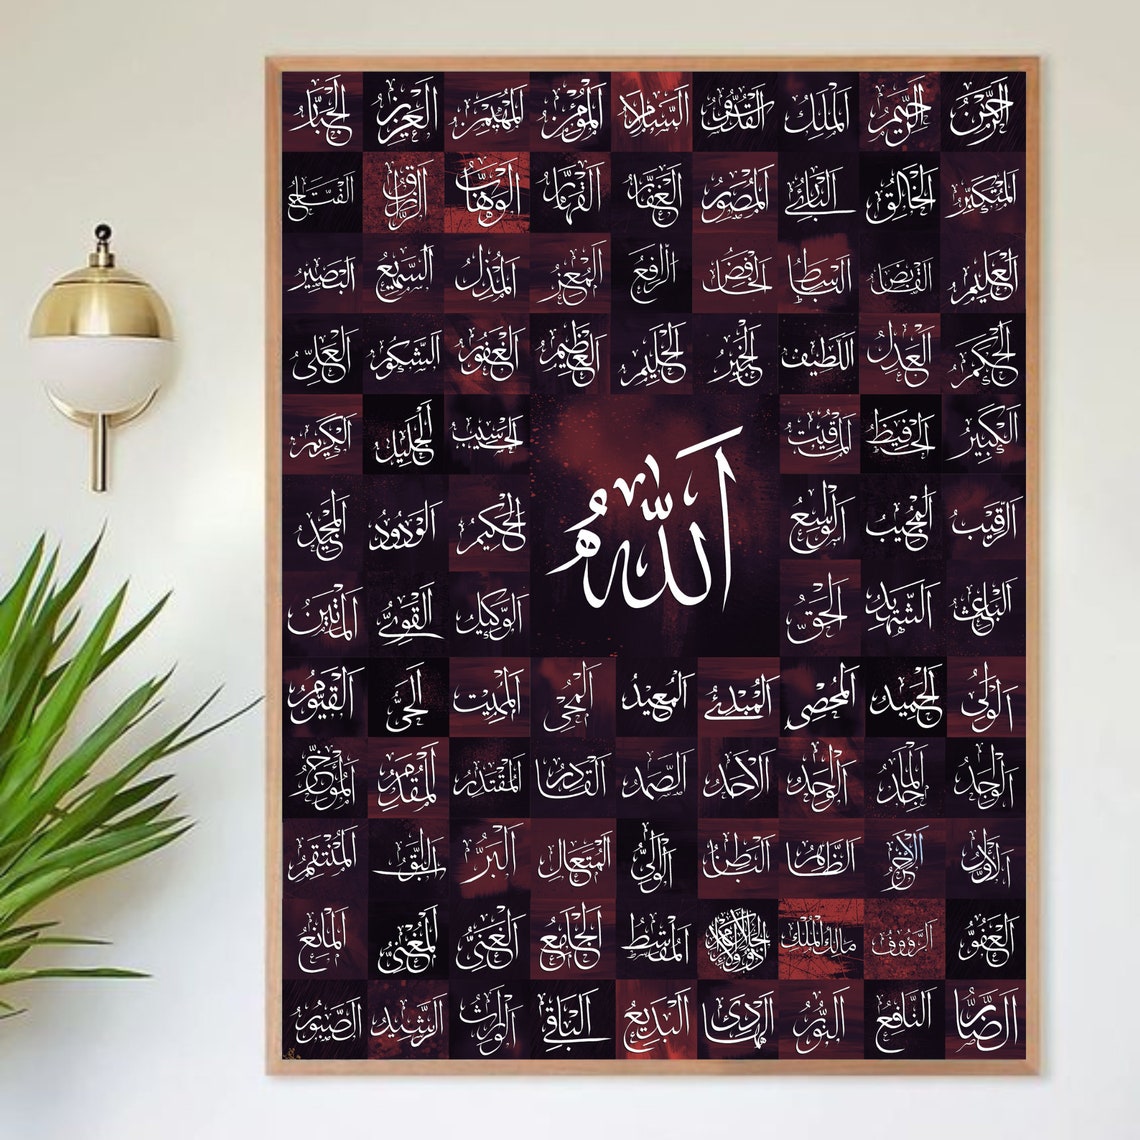 الرحمن الرحيم الملك القدوس السلام المؤمن المهيمن العزيز الجبار
المتكبر الخالق البارئ المصور الغفار القهار الوهاب الرزاق الفتاح
العليم القابض الباسط الخافض الرافع المعز المذل السميع البصير
الحكم العدل اللطيف الخبير الحليم العظيم الغفور الشكور العلي
الكبير الحفيظ المقيت الحسيب الجليل الكريم
الله
الرقيب المجيب الواسع الحكيم الودود المجيد
الباعث الشهيد الحق الوكيل القوي المتين
الولي الحميد المحصي المبدئ المعيد المحي المميت الحي القيوم
الواجد الماجد الواحد الاحد الصمد القادر المقتدر المقدم المؤخر
الاول الاخر الظاهر الباطن الوالي المتعال البر التواب المنتقم
العفو الرؤوف مالك الملك ذو الجلال والإكرام المقسط الجامع الغني المغني المانع
الضار النافع النور الهادي البديع الباقي الوارث الرشيد الصبور